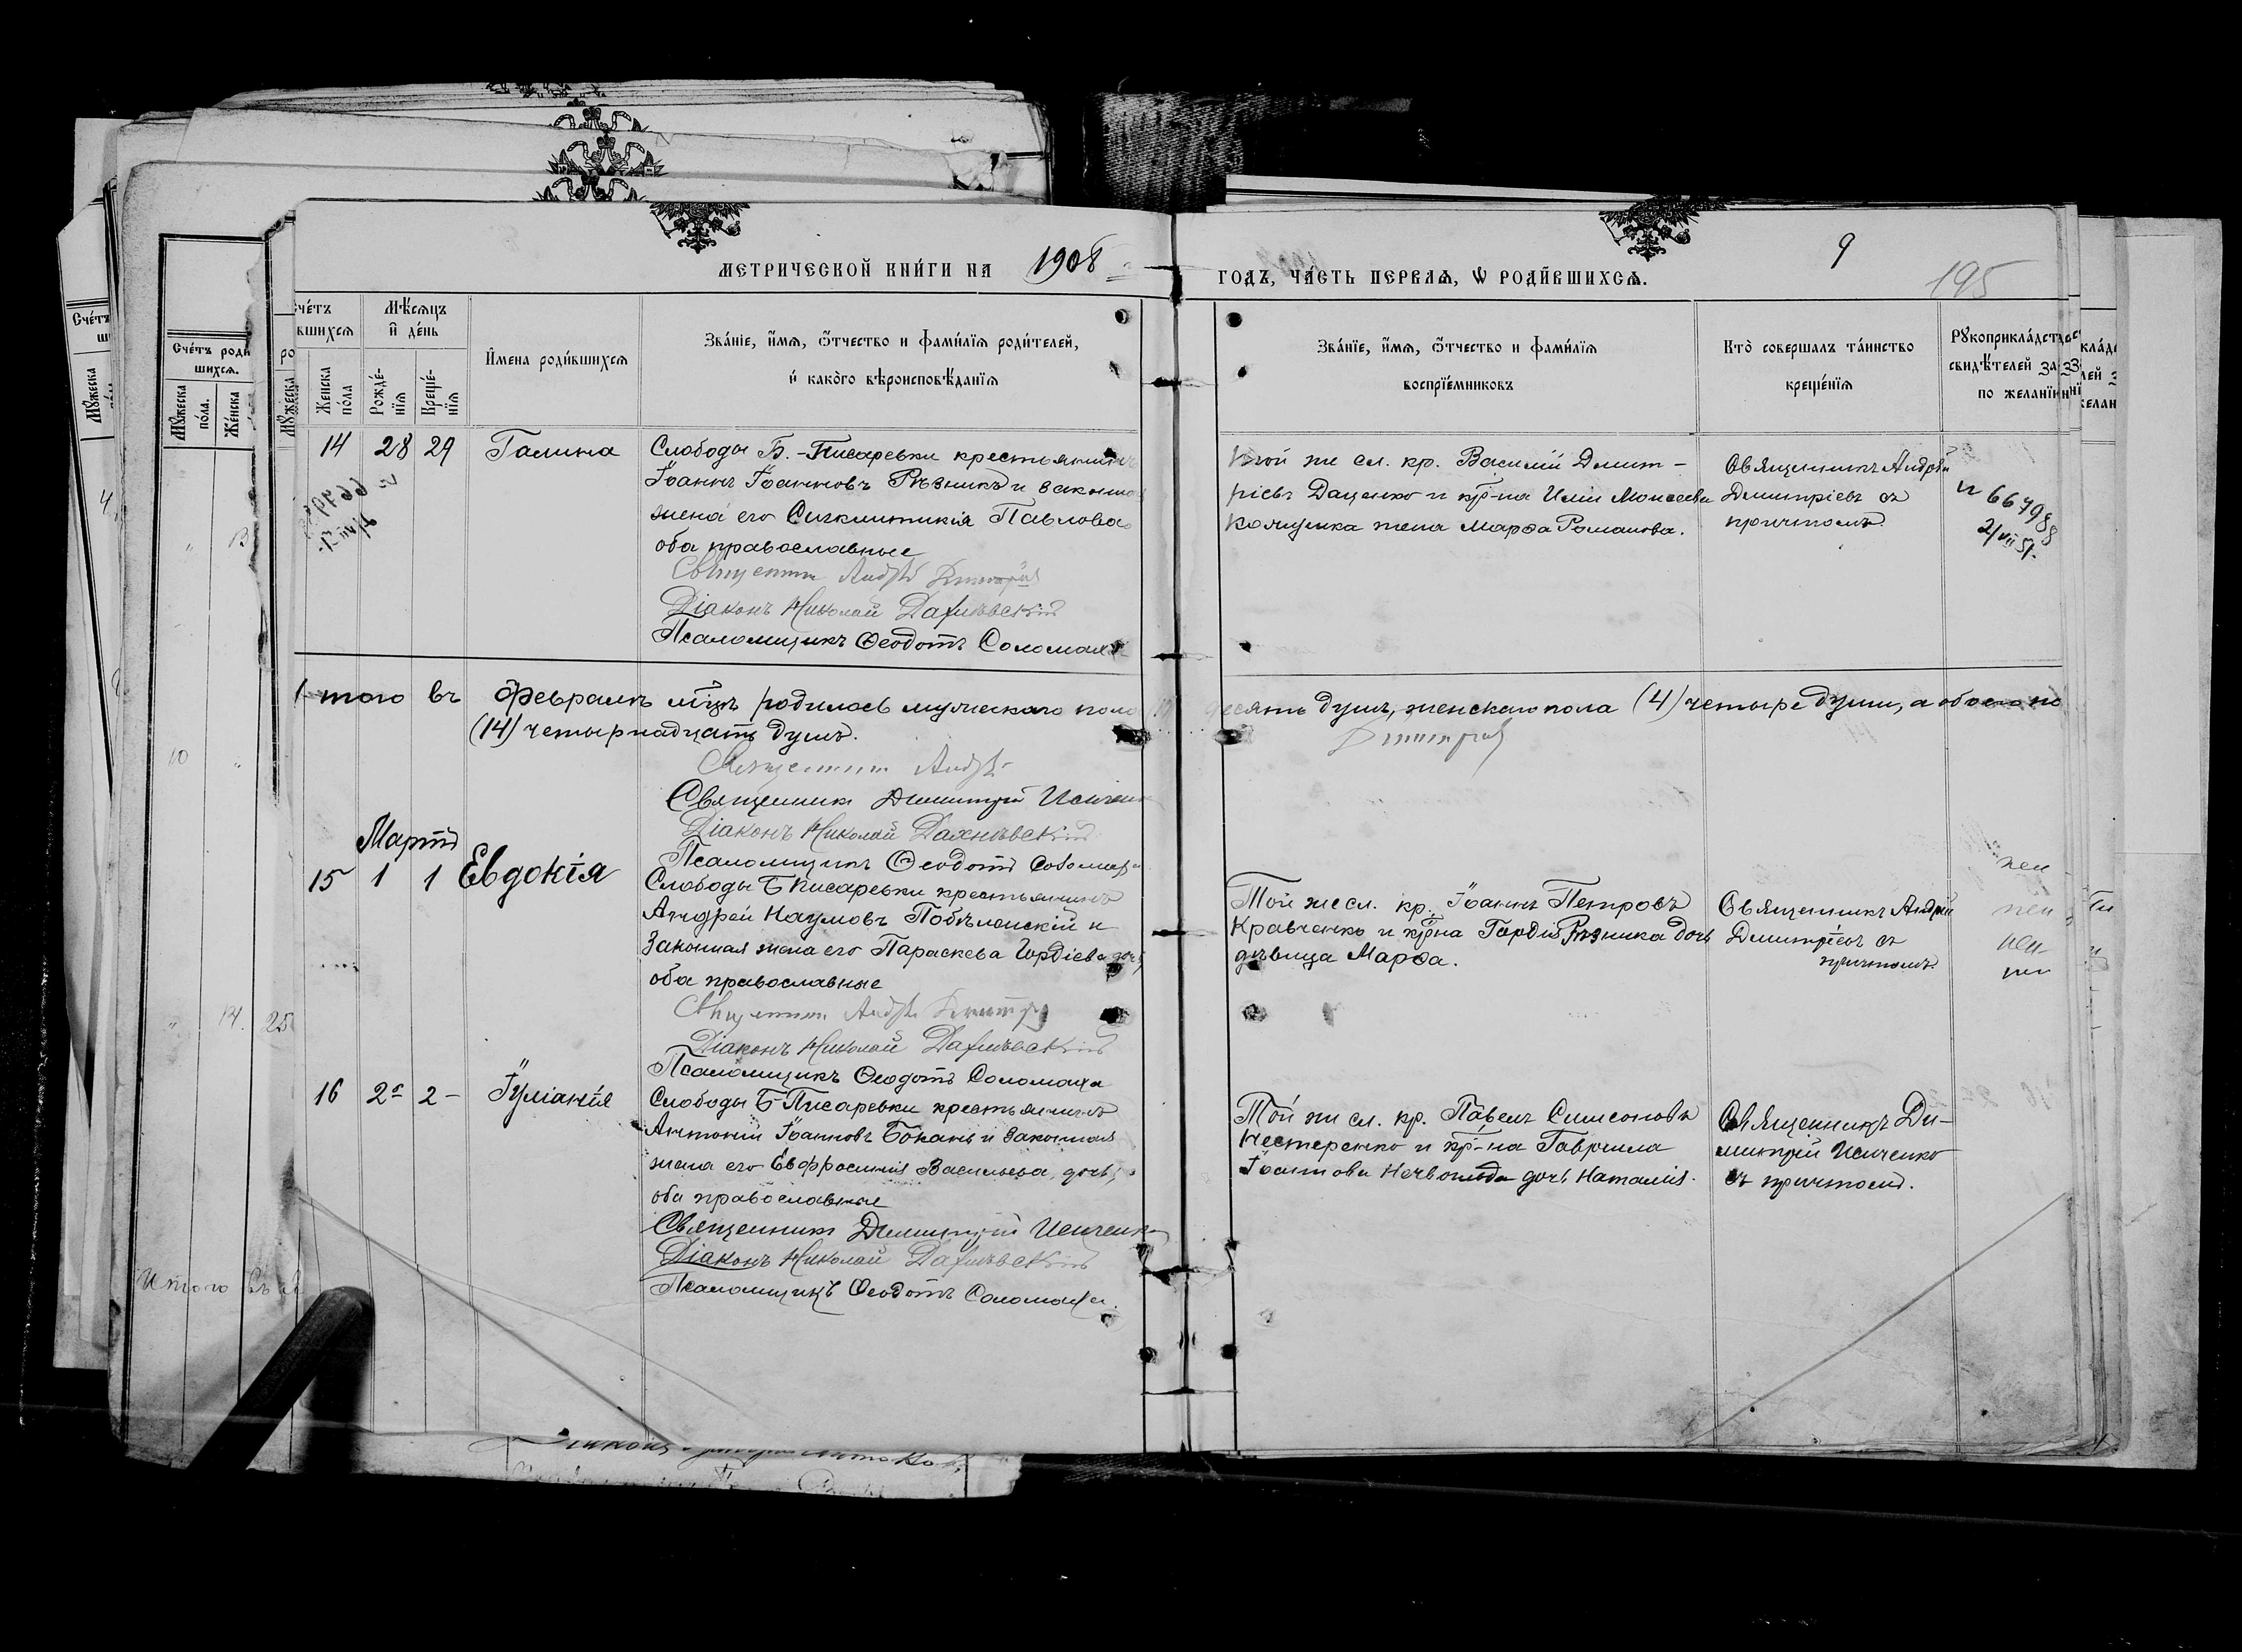 МЕТРИЧЕСКОЙ КНИ́ГИ НА 1908
ГОДЪ, ЧА́СТЬ ПЕРВАѦ, Ѡ РОДИ́ВШИХСѦ.
9
195
Сче́тъ
Мꙋжеска
Сче́тъ роди
шихсѧ.
Мꙋжеска
по́ла.
Же́нска
Сче́тъ
вшихсѧ
Женска
по́ла
Мѣ́сѧцъ
и҆ де́нь
Рожде́-
нїѧ
Креще́-
нїѧ
И҆мена роди́вшихсѧ
Зва́нїе, и҆́мѧ, ѻ҆́тчество и фами́лїѧ роди́телей,
и҆ како́го вѣроисповѣ́данїѧ
Зва́нїе, и҆́мѧ, ѻ҆́тчество и фами́лїѧ
воспрїе́мниковъ
Кто̀ соверша́лъ та́инство
креще́нїѧ
Рꙋкоприкла́дство
свидѣ́телей за
по желанїю
14 28 29 Галина
Слободы Б.-Писаревки крестьянинъ
Іоаннъ Іоанновъ Рѣзникъ и законная
жена его Сигклитикія Павлова
оба православные
Священникъ Андрей Димитріевъ
Діаконъ Николай Дахнѣвскій
Псаломщикъ Ѳеодотъ Соломаха
Той же сл. кр. Василій Димит-
ріевъ Даценко и кр-на Иліи Моисеева
Колиушка жена Марѳа Романова.
Священникъ Андрей
Димитріевъ съ
причтомъ.
N 667988
2/VII 51.
Итого въ Февралѣ м-цѣ родилось мужескаго пола
десять душъ, женскаго пола (4) четыре души, а обоего по
(14) четырнадцать душъ.
Священникъ Андрей
Димитріевъ
Священникъ Димитрій Исиченко
Діаконъ Николай Дахнѣвскій
Псаломщикъ Ѳеодотъ Соломаха
Мартъ
15 1 1 Евдокія
Слободы Б Писаревки крестьянинъ
Андрей Наумовъ Побѣленскій и
Законная жена его Параскева Гордіева дочь,
оба православные
Священникъ Андрей Димитріевъ
Діаконъ Николай Дахнѣвскій
Псаломщикъ Ѳеодотъ Соломаха
Той же сл. кр. Іоаннъ Петровъ
Кравченко и кр-на Гордія Рѣзника дочь
дѣвица Марѳа.
Священникъ Андрей
Димитріевъ съ
причтомъ.
16 2 2 Іуліанія
Слободы Б-Писаревки крестьянинъ
Антоній Іоанновъ Бокань и законная
жена его Евфросинія Васильева дочь,
оба православные
Священникъ Димитрій Исиченко
Діаконъ Николай Дахнѣвскій
Псаломщикъ Ѳеодотъ Соломаха.
Той же сл. кр. Павелъ Симеоновъ
Нестеренко и кр-на Гавріила
Іоаннова дочь Наталія.
Священникъ Ди-
митрій Исиченко
съ причтомъ.
10
14.
25
Итого